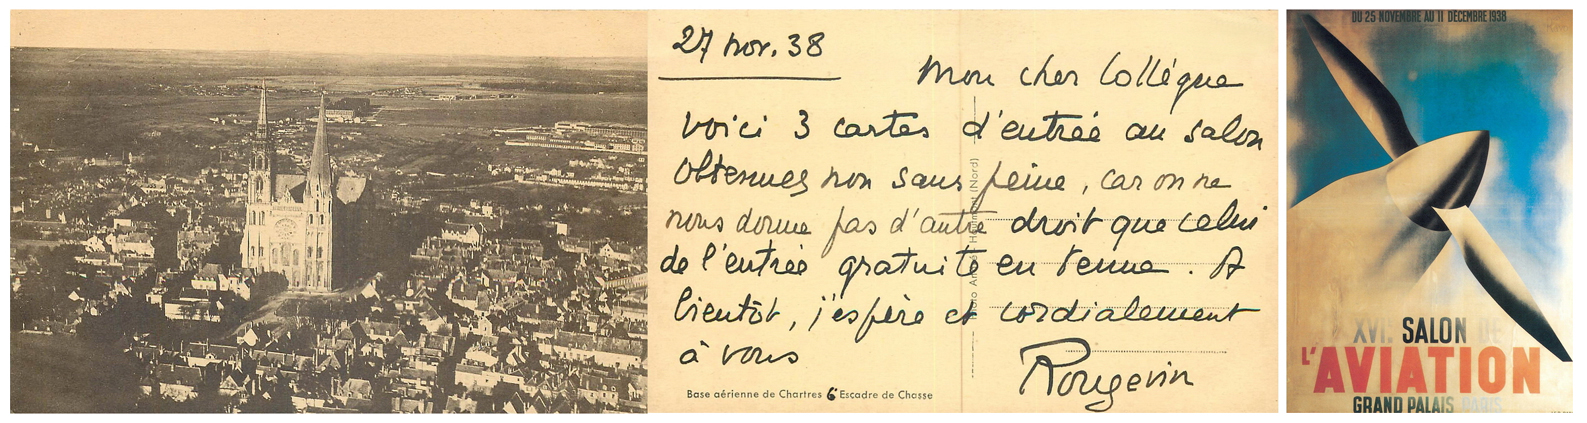 27 nov. 38
Mon cher Collègue
voici 3 cartes d'entrée au salon
obtenues non sans peine, car on ne
nous donne pas d'autre droit que celui
de l'entrée gratuite en tenue. A
bientôt, j'espère et cordialement
à vous
Rougevin
Base aérienne de Chartres 6e Escadre de Chasse
(Nord)
DU 25 NOVEMBRE AU 11 DÉCEMBRE 1938
XVIe SALON DE
L'AVIATION
GRAND PALAIS PARIS